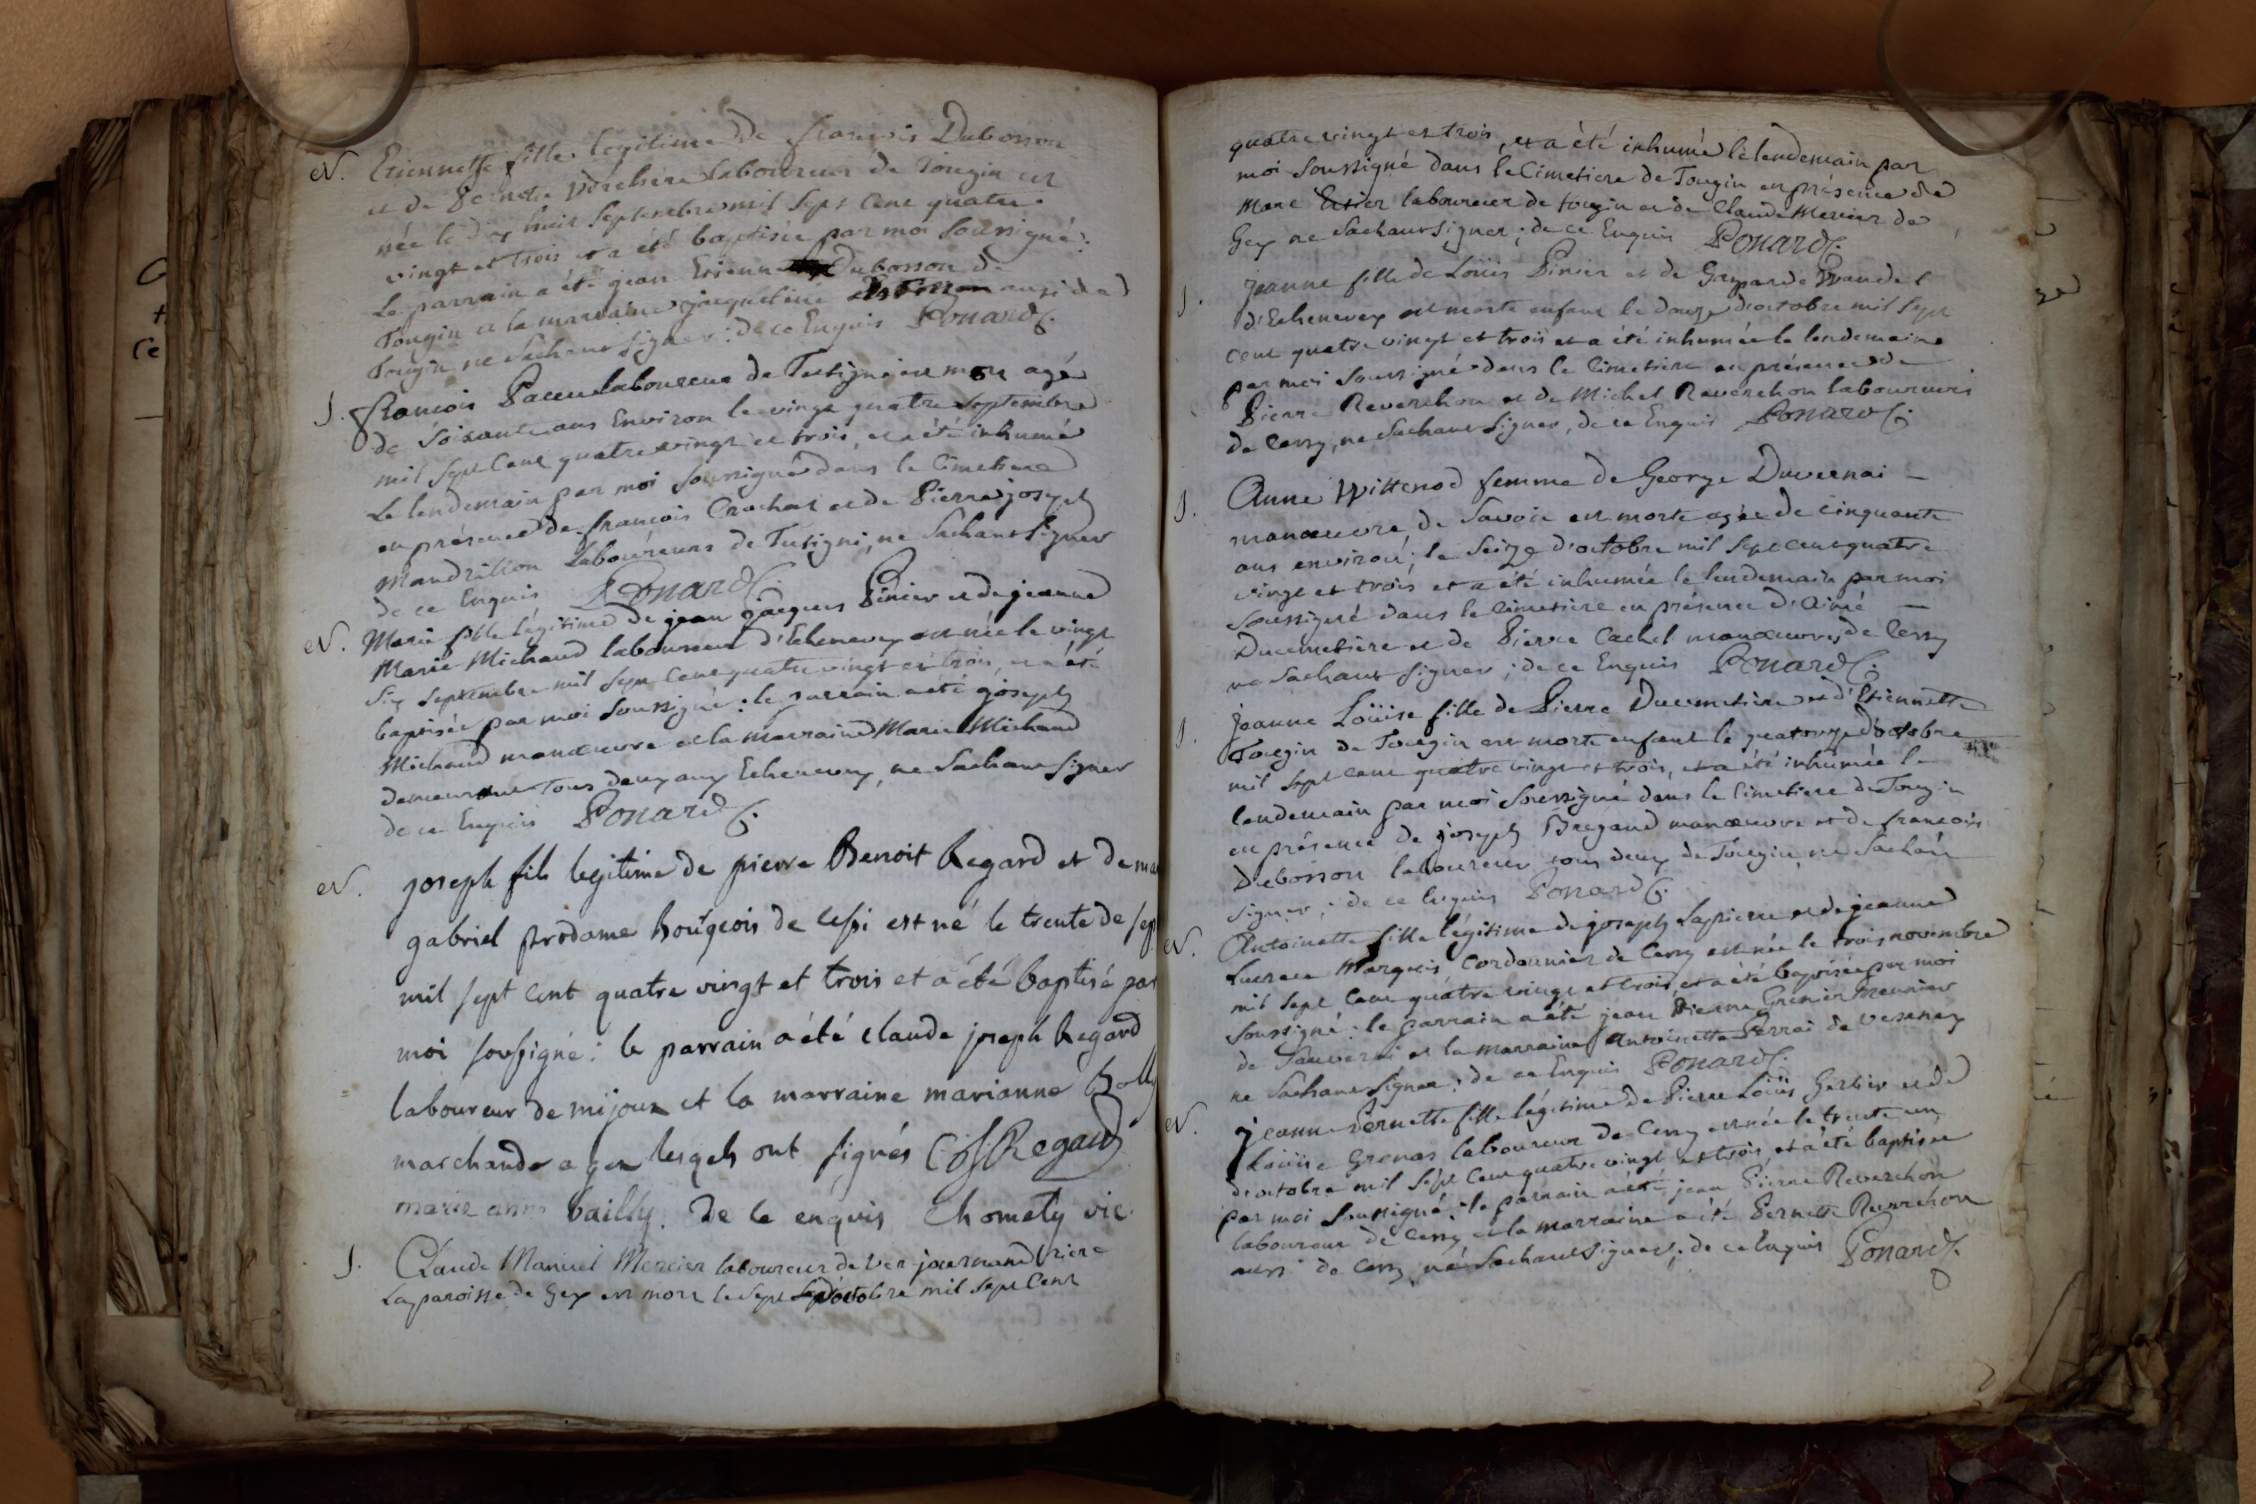 N. Etiennette fille legitime de françois Dubosson
et de Pernette laboureur de Tougin est
née le dix huit Septembre mil Sept Cent quatre
vingt et Trois et a été baptisée par moi Soussigné:
Le parrain a été jean Etienne Dubosson de
Tougin et la marraine jacqueline aussi de
Tougin ne Sachant Signer: de ce Enquis Ponard C.
J. françois laboureur de Tutigni est mort agé
de Soixante ans Environ le vingt quatre Septembre
mil Sept Cent quatre vingt et trois, et a été inhumé
Le lendemain par moi Soussigné dans le Cimetiere
en présence de françois Crochat et de Pierre joseph
Mandrillon Laboureurs de Tutigni, ne Sachant Signer
de ce Enquis Ponard C.
N. Marie fille légitime de jean jacques Pinier et de jeanne
Marie Michaud laboureur d'Echenevex est née le vingt
Six Septembre mil Sept Cent quatre vingt et trois, et a été
baptisée par moi Soussigné: le parrain a été joseph
Michaud manœuvre et la marraine Marie Michaud
demeurant Tous deux aux Echenevex, ne Sachant Signer
de ce Enquis Ponard C.
N. joseph fils legitime de pierre Benoit Regard et de ma
gabriel prodame bourgeois de est né le trente de sep
mil sept cent quatre vingt et trois et a été baptisé par
moi soussigné: le parrain a été claude joseph Regard
laboureur de mijoux et la marraine marianne
marchande a gex lesqels ont signés Regard
marie anne bailly. De ce enquis Chomety vic.
J. Claude Manuel Mercier laboureur de
La paroisse de Gex est mort le Sept d'octobre mil Sept Cent
quatre vingt et trois, et a été inhumé le lendemain par
moi Soussigné dans le Cimetiere de Tougin en présence de
Marc laboureur de tougin et de Claude Mercier de
Gex ne Sachant Signer; de ce Enquis Ponard C.
J. jeanne fille de Loüis Pinier et de Gaspарde
d'Echenevex est morte enfant le douze d'octobre mil Sept
Cent quatre vingt et trois et a été inhumée le lendemain
par moi Soussigné dans le Cimetiere en présence de
Pierre Reverchon et de Michel Reverchon laboureurs
de Cessy, ne Sachant Signer, de ce Enquis Ponard C.
J. Anne Wittenod femme de George Duvernai –
manœuvre, de Savoie est morte agée de Cinquante
ans environ; le Seize d'octobre mil Sept cent quatre
vingt et trois et a été inhumée le lendemain par moi
Soussigné dans le Cimetiere en présence d'Aimé –
Ducimetière et de Pierre Cachet manœuvres de Cessy
ne Sachant Signer; de ce Enquis Ponard C.
J. jeanne Loüise fille de Pierre Ducimetière et d'Etiennette
Tougin de Tougin est morte enfant le quatorze d'octobre
mil Sept cent quatre vingt et trois, et a été inhumée le
lendemain par moi Soussigné dans le Cimetiere de Tougin
en présence de joseph Bregand manœuvre et de françois
Dubosson laboureur tous deux de Tougin, ne Sachant
Signer; de ce Enquis Ponard C.
N. Antoinette fille légitime de joseph Lapierre et de jeanne
Lucrece Marquis Cordonnier de Cessy est née le trois novembre
mil Sept Cent quatre vingt et trois et a été baptisée par moi
Soussigné: le parrain a été jean Pierre Grenier Meunier
de Sauverni et la marraine Antoinette Perrai de Vesenex
ne Sachant Signer; de ce Enquis Ponard C.
N. jeanne Pernette fille légitime de Pierre Loüis Gerbier et de
Loüise Grenas laboureur de Cessy est née le trente un
d'octobre mil Sept Cent quatre vingt et trois, et a été baptisée
par moi Soussigné: le parrain a été jean Pierre Reverchon
laboureur de Cessy et la marraine a été Pernette Reverchon
aussi de Cessy ne Sachant Signer; de ce Enquis Ponard C.